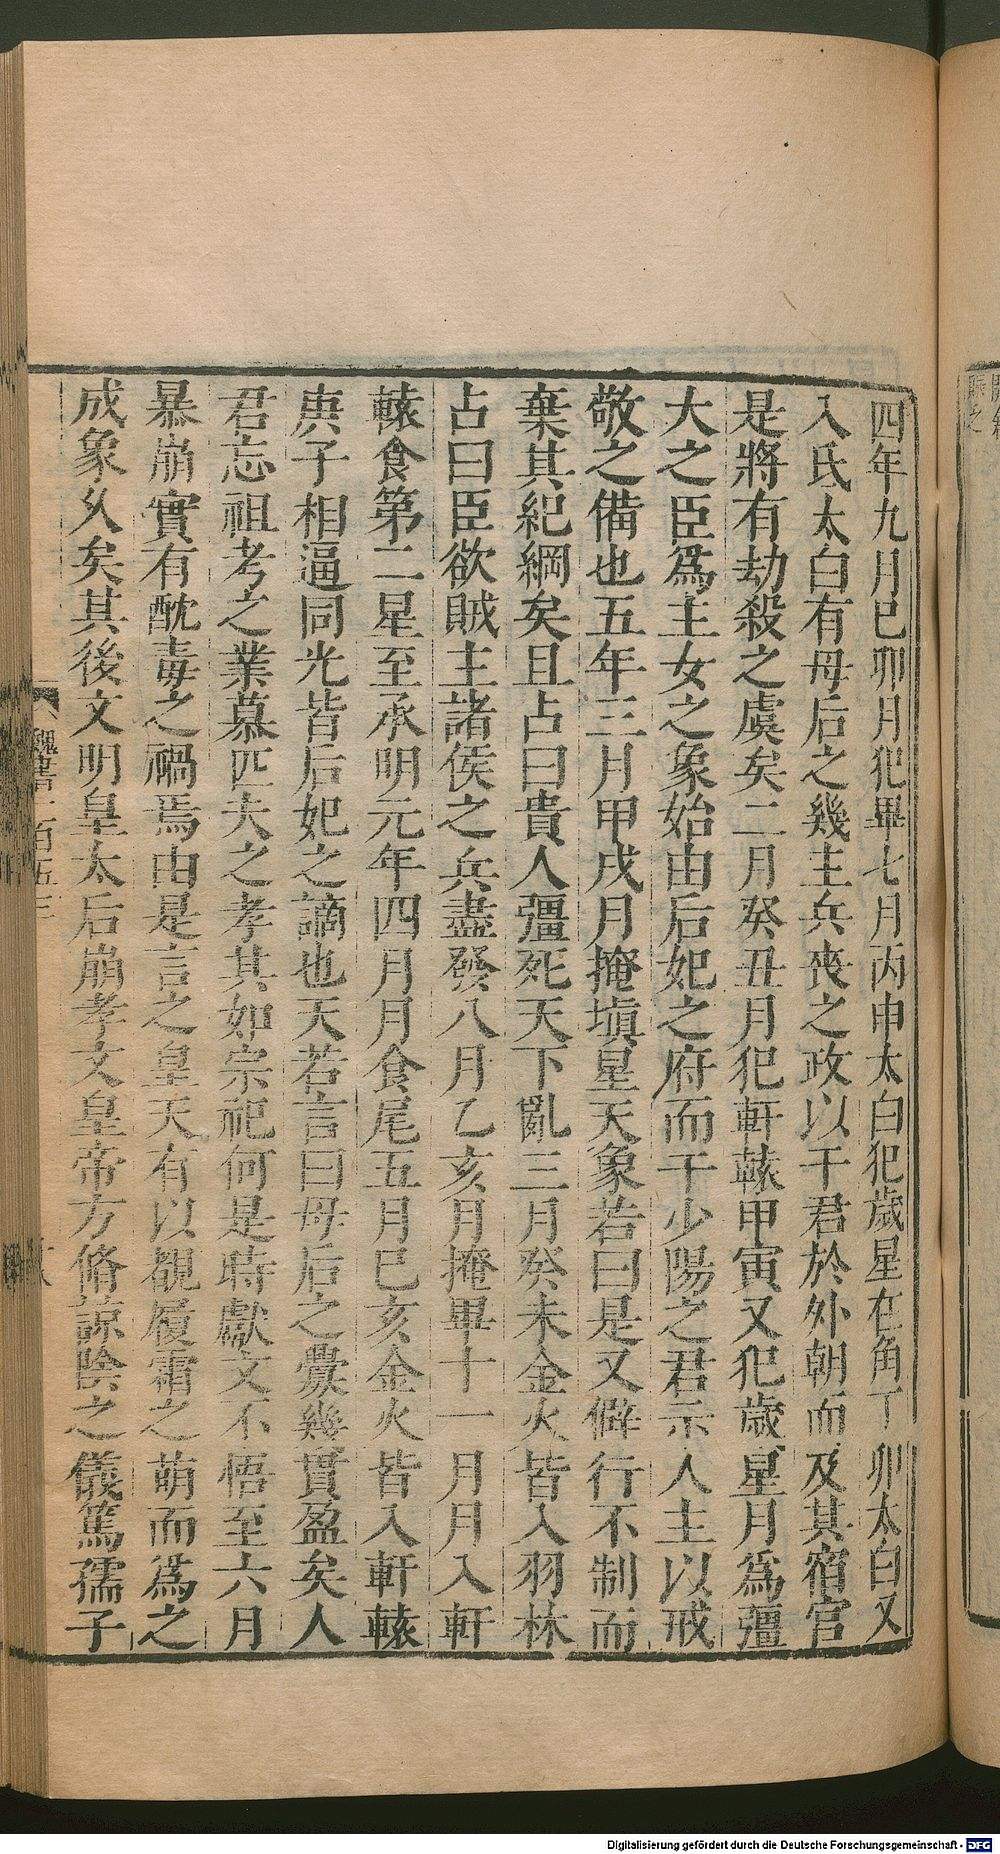 四年九月巳卯月犯畢七月丙申太白犯歲星在角丁卯太白又
入氐太白有母后之幾主兵喪之政以干君於外朝而及其宿官
是將有劫殺之虞矣二月癸丑月犯軒轅甲寅又犯歲星月爲彊
大之臣爲主女之象始由后妃之府而干少陽之君示人主以戒
敬之備也五年三月甲戌月掩塡星天象若曰是又僻行不制而
棄其紀綱矣且占曰貴人彊死天下亂三月癸未金火皆入羽林
占曰臣欲賊主諸侯之兵盡發八月乙亥月掩畢十一月月入軒
轅食第二星至承明元年四月月食尾五月巳亥金火皆入軒轅
庚子相逼同光皆后妃之謫也天若言曰母后之釁幾貫盈矣人
君忘祖考之業慕匹夫之孝其如宗祀何是時獻文不悟至六月
暴崩實有酖毒之禍焉由是言之皇天有以覩履霜之萌而爲之
成象久矣其後文明皇太后崩孝文皇帝方脩諒陰之儀篤孺子
魏書一百五三
Digitalisierung gefördert durch die Deutsche Forschungsgemeinschaft - DFG